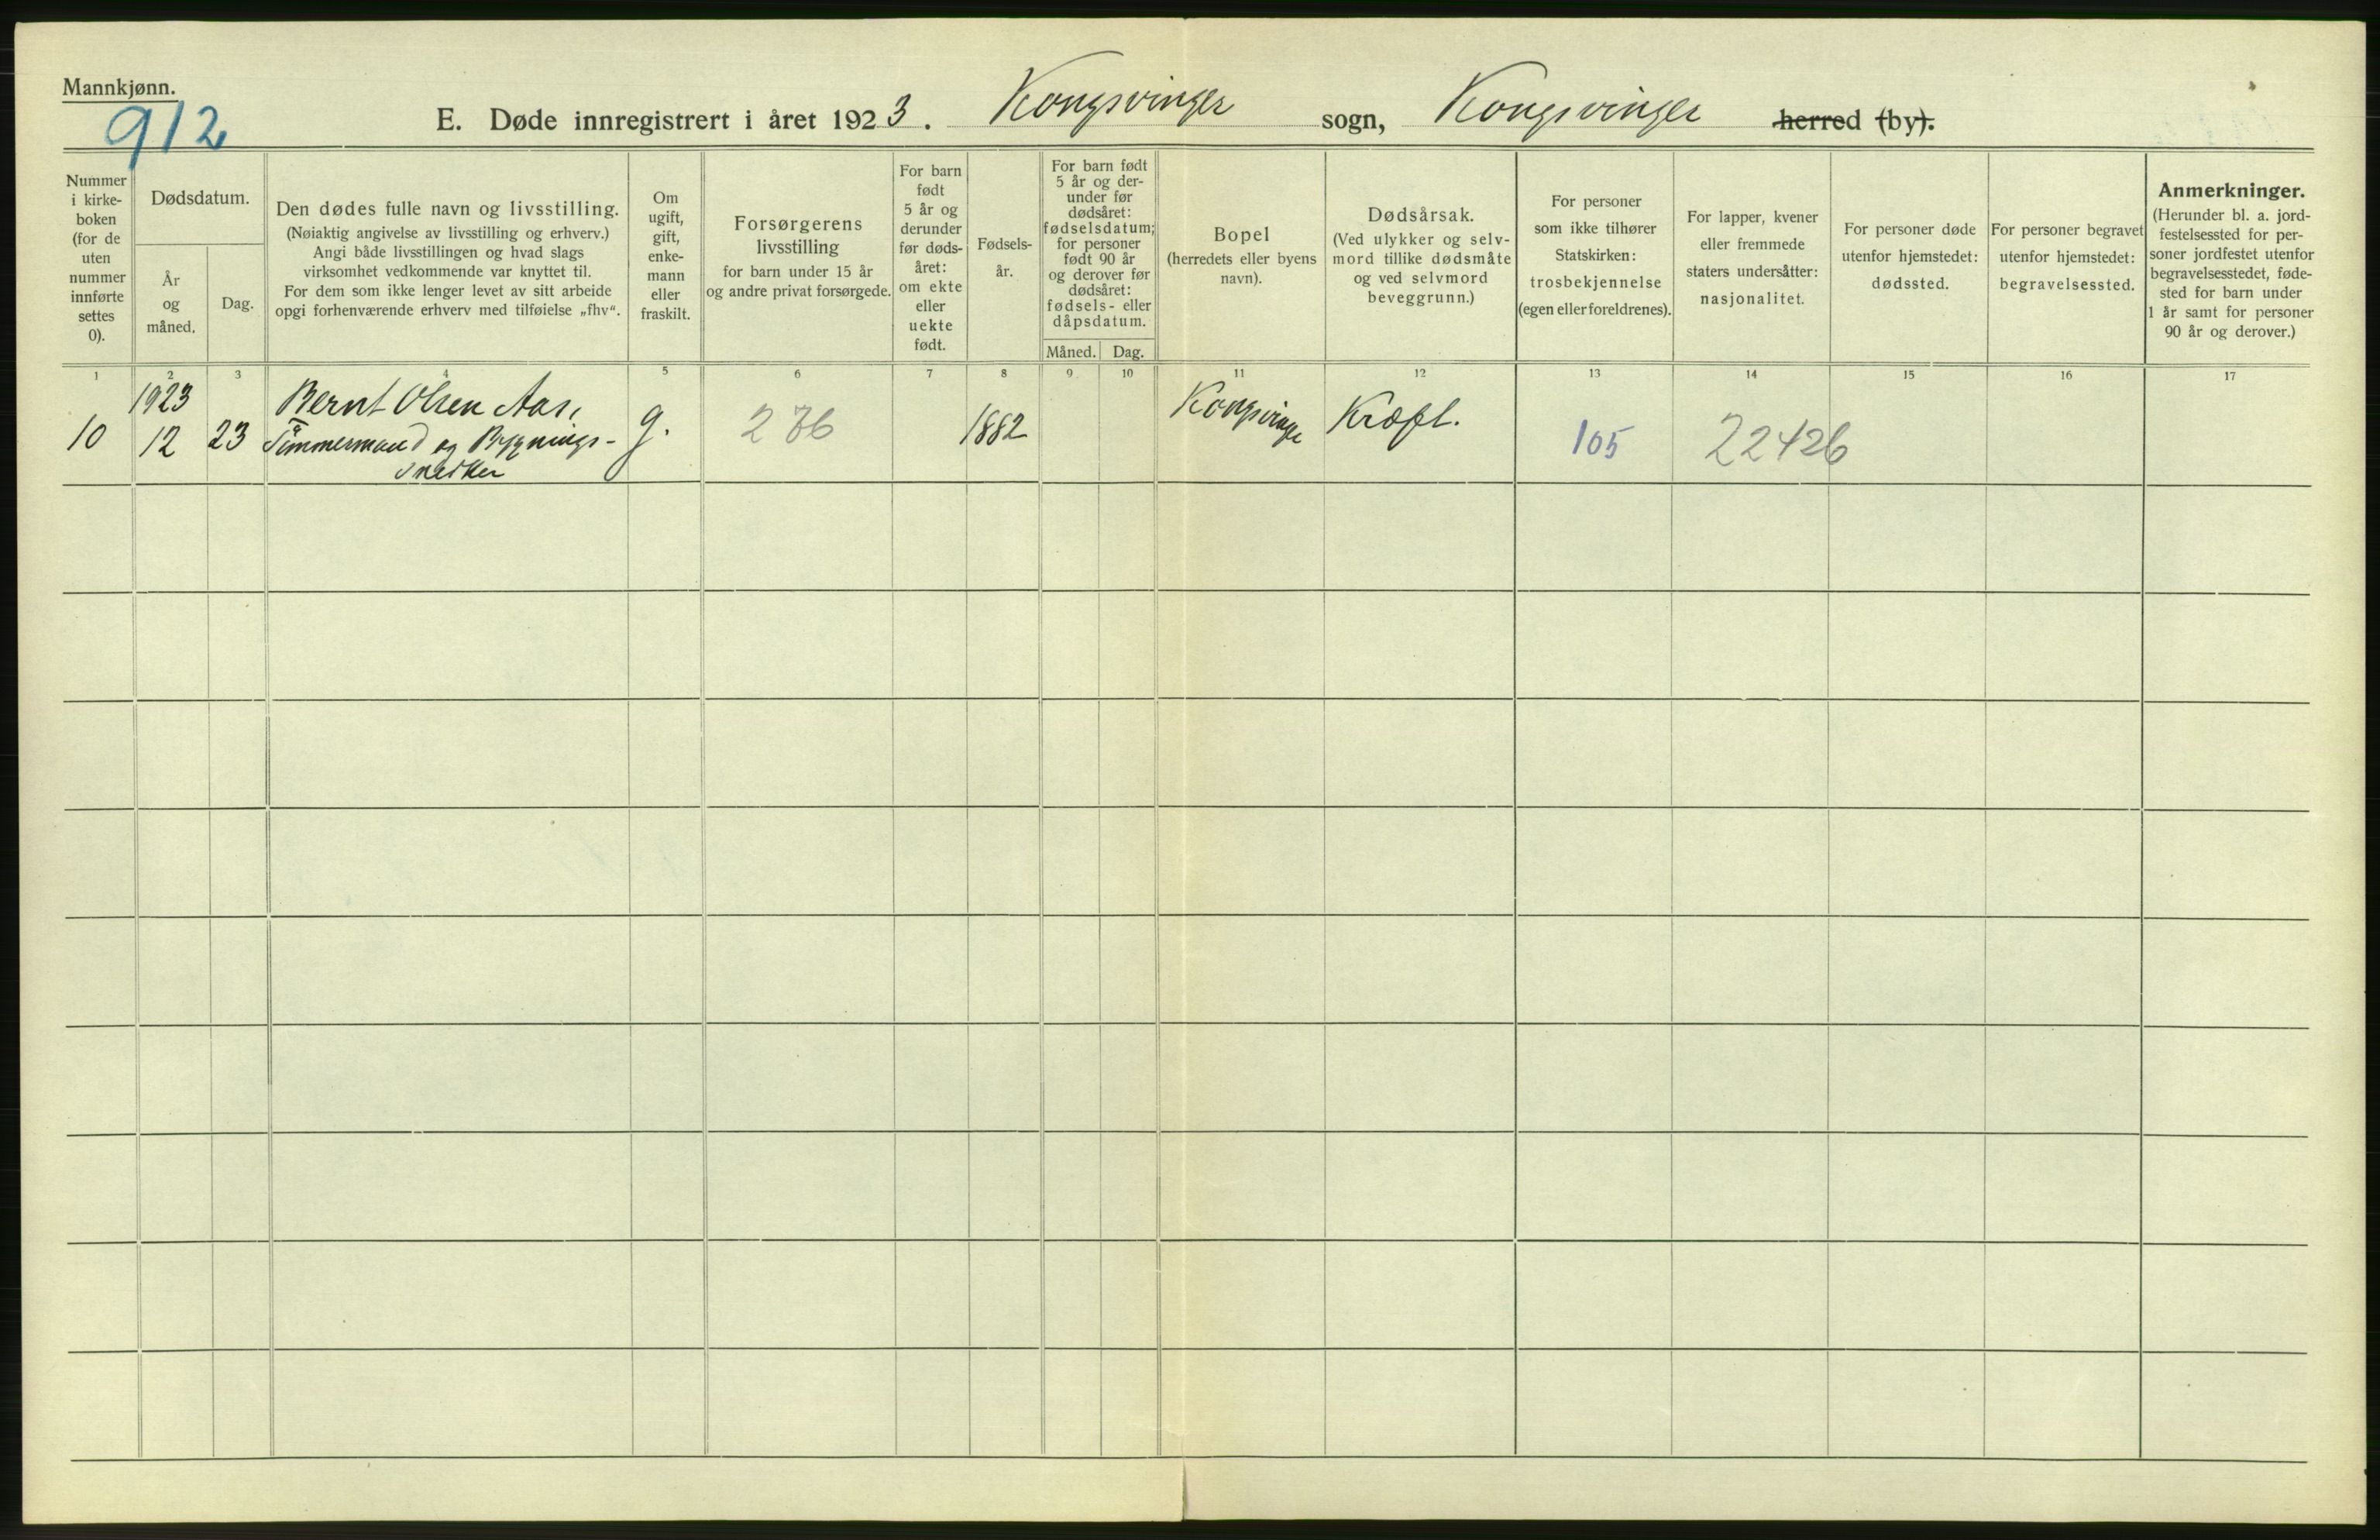 Mannkjønn.
912
E. Døde innregistrert i året 1923. Kongsvinger sogn, Kongsvinger herred (by).
Nummer
i kirke-
boken
(for de
uten
nummer
innførte
settes
0).
Dødsdatum.
År
og
måned.
Dag.
Den dødes fulle navn og livsstilling.
(Nøiaktig angivelse av livsstilling og erhverv.)
Angi både livsstillingen og hvad slags
virksomhet vedkommende var knyttet til.
For dem som ikke lenger levet av sitt arbeide
opgi forhenværende erhverv med tilføielse „fhv“.
Om
ugift,
gift,
enke-
mann
eller
fraskilt.
Forsørgerens
livsstilling
for barn under 15 år
og andre privat forsørgede.
For barn
født
5 år og
derunder
før døds-
året:
om ekte
eller
uekte
født.
Fødsels-
år.
For barn født
5 år og der-
under før
dødsåret:
fødselsdatum;
for personer
født 90 år
og derover før
dødsåret:
fødsels- eller
dåpsdatum.
Måned. Dag.
Bopel
(herredets eller byens
navn).
Dødsårsak.
(Ved ulykker og selv-
mord tillike dødsmåte
og ved selvmord
beveggrunn.)
For personer
som ikke tilhører
Statskirken:
trosbekjennelse
(egen eller foreldrenes).
For lapper, kvener
eller fremmede
staters undersåtter:
nasjonalitet.
For personer døde
utenfor hjemstedet:
dødssted.
For personer begravet
utenfor hjemstedet:
begravelsessted.
Anmerkninger.
(Herunder bl. a. jord-
festelsessted for per-
soner jordfestet utenfor
begravelsesstedet, føde-
sted for barn under
1 år samt for personer
90 år og derover.)
1 2 3 4 5 6 7 8 9 10 11 12 13 14 15 16 17
1923 Bernt Olsen Aas, Kongsvinger Kræft.
10 12 23 Tømmermand og Bygnings- g. 276 1882 105 22426
snedker